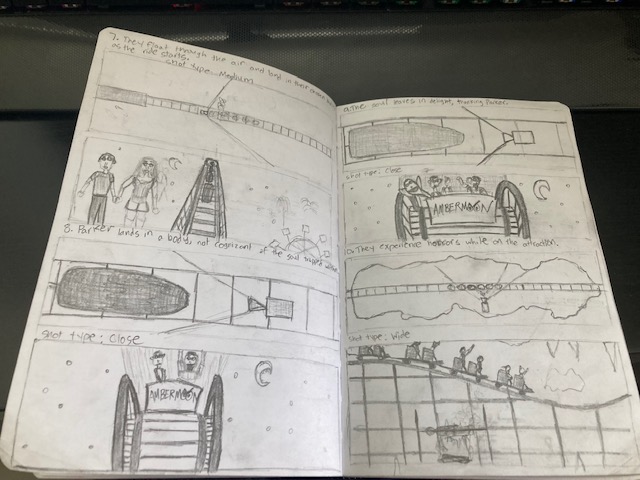 7. They float through the air and land in their chosen
as the ride starts.
Shot type: Medium
8. Parker lands in a body, not cognizant of the soul trapped within.
Shot type: Close
AMBERMOON
9. The soul leaves in delight, thanking Parker.
Shot type: Close
AMBERMOON
10. They experience horrors while on the attraction.
Shot type: Wide